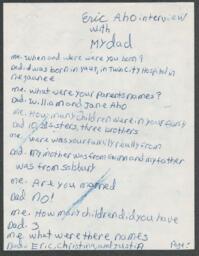 Eric Aho interview
with
My dad
me: when and were were you born?
Dad: I was born in in Twin City Hospital in
negaunee
me: what were your Parents names?
Dad: William and Jane Aho
me: How many Children were in your family
Dad sisters, three brothers
me: were was your family really from
Dad: My mother was from Gwinn and my father
was from
me: Are you married
Dad NO!
me: How many children did you have
Dad: 3
me: what were there names
Dad: Eric, Christina, and Justin
Page 1